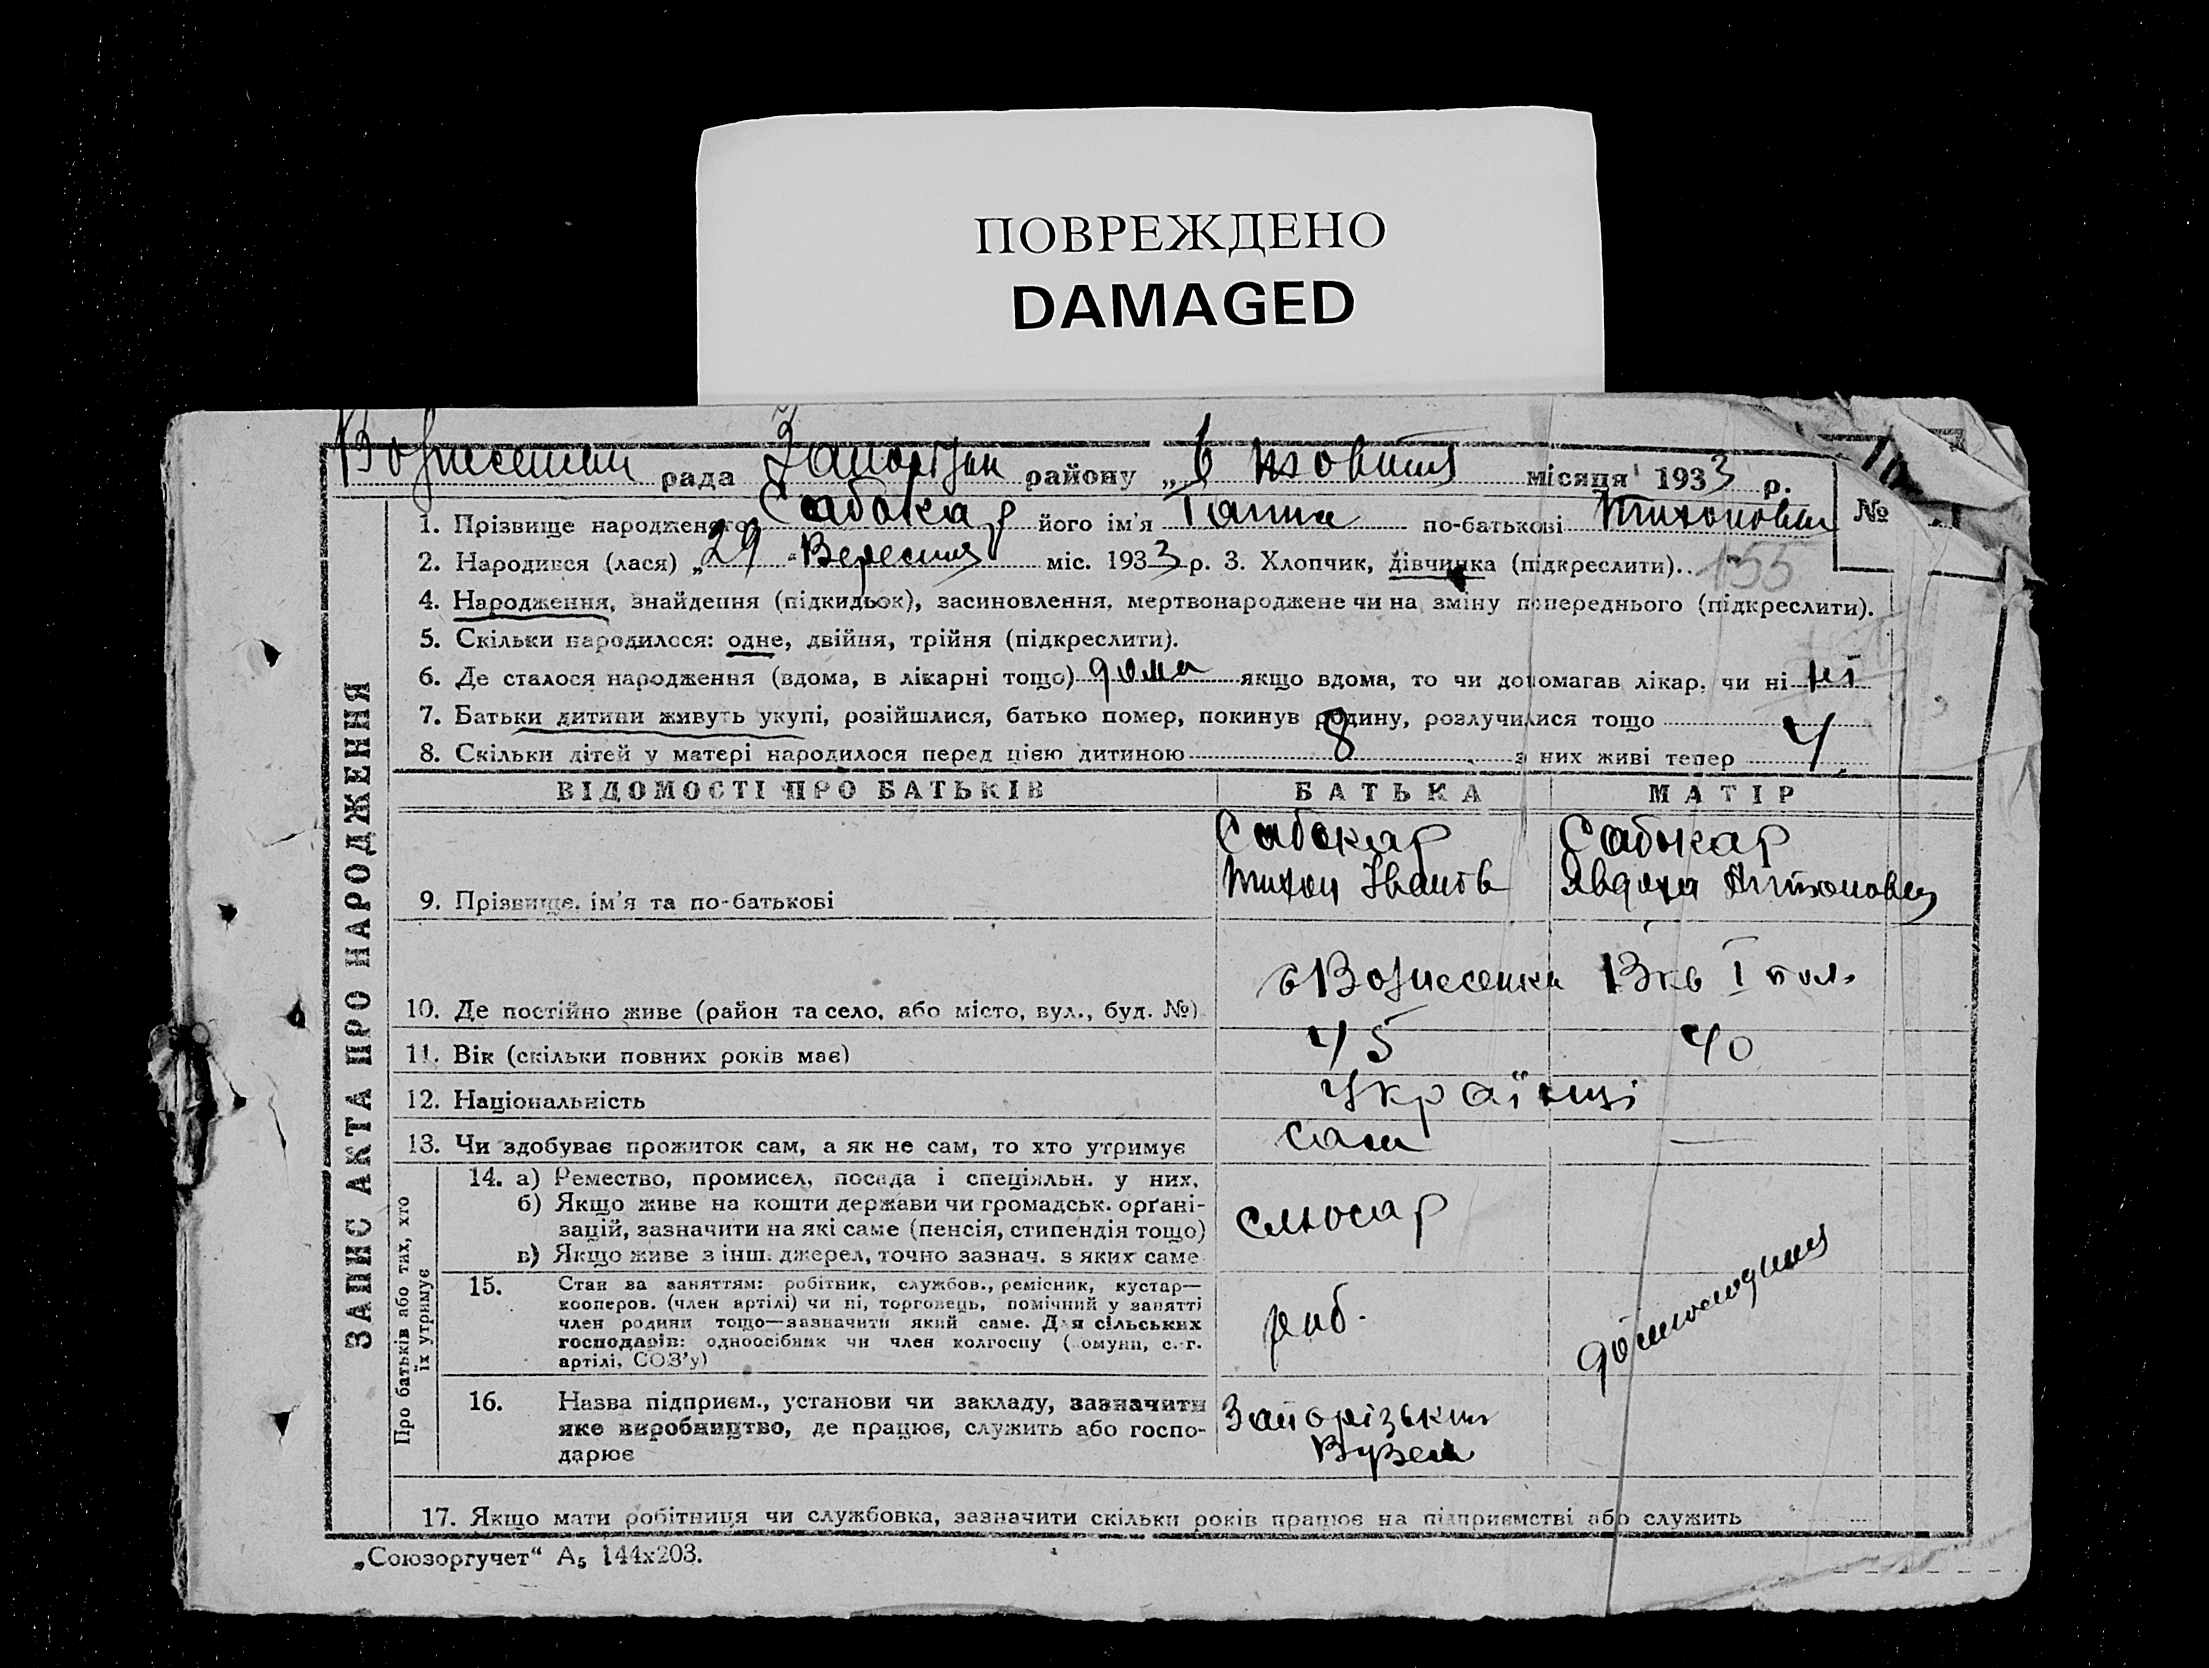 ПОВРЕЖДЕНО
DAMAGED
рада Запорізьк району „6 жовтня місяця 1933 р.
№
1. Прізвище народженого Сабокар його ім'я Ганна по-батькові Тихоновна
2. Народився (лася) „29 Вересня міс. 1933 р. 3. Хлопчик, дівчинка (підкреслити). 155
4. Народження, знайдення (підкидьок), засиновлення, мертвонароджене чи на зміну попереднього (підкреслити).
5. Скільки народилося: одне, двійня, трійня (підкреслити).
6. Де сталося народження (вдома, в лікарні тощо) дома якщо вдома, то чи допомагав лікар, чи ні ні
7. Батьки дитини живуть укупі, розійшлися, батько помер, покинув родину, розлучилися тощо
8. Скільки дітей у матері народилося перед цією дитиною 8 з них живі тепер 4
ВІДОМОСТІ ПРО БАТЬКІВ БАТЬКА МАТІР
Сабокар Сабокар
Тихон Іванов Явдоха Антоновна
9. Прізвище, ім'я та по-батькові
с Вознесенка 13 кв I пол.
10. Де постійно живе (район та село, або місто, вул., буд. №)
11. Вік (скільки повних років має) 45 40
12. Національність Українці
13. Чи здобуває прожиток сам, а як не сам, то хто утримує сам —
14. а) Ремество, промисел, посада і спеціяльн. у них.
б) Якщо живе на кошти держави чи громадськ. орґані-
зацій, зазначити на які саме (пенсія, стипендія тощо) слюсар
в) Якщо живе з інш. джерел, точно зазнач. з яких саме
15. Стан за заняттям: робітник, службов., ремісник, кустар—
кооперов. (член артілі) чи ні, торговець, помічний у занятті
член родини тощо—зазначити який саме. Для сільських роб. домогосподиня
господарів: одноосібник чи член колгоспу (комуни, с.-г.
артілі, СОЗ'у)
16. Назва підприєм., установи чи закладу, зазначити
яке виробництво, де працює, служить або госпо-
дарює
Запорізький
Вузел
17. Якщо мати робітниця чи службовка, зазначити скільки років працює на підприємстві або служить
„Союзоргучет“ А5 144х203.
ЗАПИС АКТА ПРО НАРОДЖЕННЯ
Про батьків або тих, хто
їх утримує